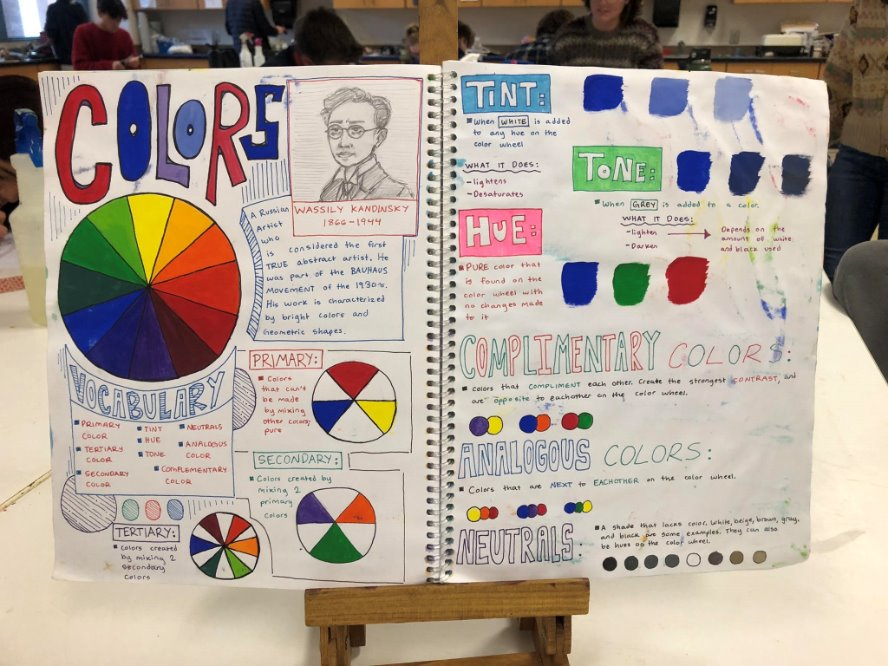 COLORS
WASSILY KANDINSKY
1866-1944
A Russian
Artist
who
is considered the first
TRUE abstract artist. He
was part of the BAUHAUS
MOVEMENT of the 1930's.
His work is characterized
by bright colors and
Geometric shapes.
VOCABULARY
PRIMARY COLOR
TERTIARY COLOR
SECONDARY COLOR
TINT
HUE
TONE
NEUTRALS
ANALAGOUS COLOR
COMPLEMENTARY COLOR
PRIMARY:
Colors
that can't
be made
by mixing
other colors,
pure
SECONDARY:
Colors created by
mixing 2
primary
colors
TERTIARY:
colors created
by mixing 2
secondary
colors
TINT:
When WHITE is added
to any hue on the
color wheel
WHAT IT DOES:
-lightens
-Desaturates
TONE:
When GREY is added to a color.
WHAT IT DOES:
-lighten
-Darken
Depends on the
amount of white
and black used
HUE:
PURE color that
is found on the
color wheel with
no changes made
to it
COMPLIMENTARY COLORS:
colors that COMPLIMENT each other. Create the strongest CONTRAST, and
are opposite to eachother on the color wheel.
ANALOGOUS COLORS:
Colors that are NEXT to EACHOTHER on the color wheel.
NEUTRALS:
A shade that lacks color. White, beige, brown, gray,
and black are some examples. They can also
be hues on the color wheel.